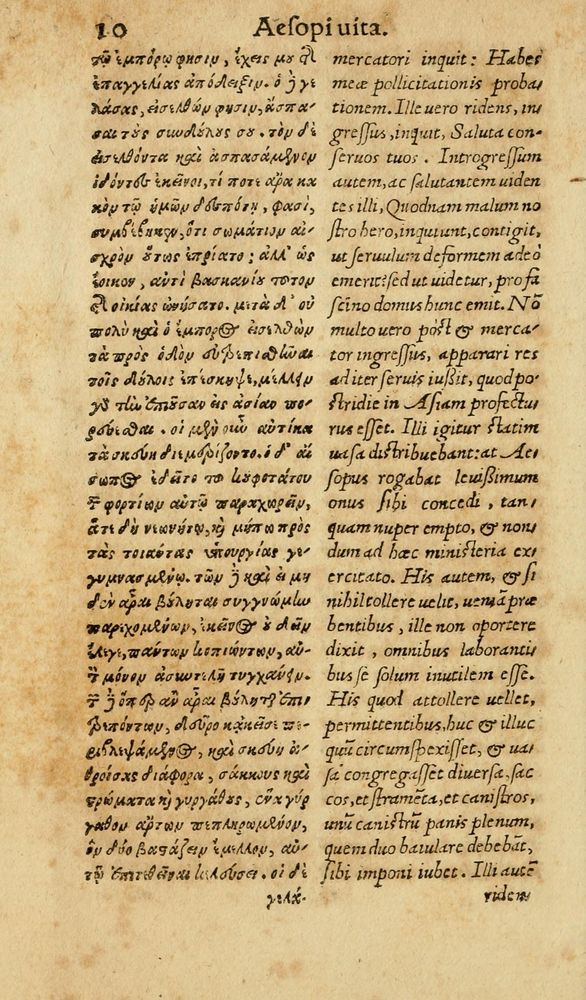 10 Aesopi vita.
τῷ ἐμπόρῳ φησὶν, ἔχεις μου τῆς
ἐπαγγελίας ἀπόδειξιν. ὁ δὲ γε
λάσας, εἰσελθών φησιν, ἄσπα-
σαι τοὺς συνδούλους σου. τὸν δὲ
εἰσελθόντα καὶ ἀσπασάμενον
ἰδόντες ἐκεῖνοι, τί ποτε ἄρα κα
κὸν τῷ ἡμῶν δεσπότῃ, φασὶ,
συμβέβηκεν, ὅτι σωμάτιον αἰ-
σχρὸν οὕτως ἐπρίατο; ἀλλ' ὡς
ἔοικεν, ἀντὶ βασκανίου τοῦτον
τῆς οἰκίας ὠνήσατο. μετὰ δ' οὐ
πολὺ καὶ ὁ ἔμπορος εἰσελθὼν
τὰ πρὸς ὁδὸν εὐτρεπισθῆναι
τοῖς δούλοις ἐπέσκηψε, μέλλειν
γὰρ τὴν ἐπιοῦσαν εἰς ἀσίαν πο-
ρεύεσθαι. οἱ μὲν οὖν αὐτίκα
τὰ σκεύη διεμερίζοντο. ὁ δ' αἴ
σωπος ἐδεῖτο τὸ κουφότατον
τῶν φορτίων αὐτῷ παραχωρεῖν,
ἅτε δὴ νεωνήτῳ, καὶ μήπω πρὸς
τὰς τοιαύτας ὑπουργίας γε
γυμνασμένῳ. τῶν δὲ καὶ εἰ μη
δὲν ἆραι βούλεται συγγνώμην
παρεχομένων, ἐκεῖνος οὐ δεῖν
ἔλεγε, πάντων κοπιώντων, αὐ-
τὸν μόνον ἀσυντελῆ τυγχάνειν.
τῶν δὲ ὅπερ ἂν ἆραι βούλητ' ἐπι
τρεπόντων, δεῦρο κἀκεῖσε πε-
ριβλεψάμενος, καὶ σκεύη ἀ-
θροίσας διάφορα, σάκκους καὶ
στρώματα καὶ γυργάθους, ἕνα γύρ
γαθον ἄρτων πεπληρωμένον,
ὃν δύο βαστάζειν ἔμελλον, αὐ-
τῷ ἐπιτεθῆναι κελεύει. οἱ δὲ
γελά-
mercatori inquit: Habes
meæ pollicitationis proba
tionem. Ille vero ridens, in
gressus, inquit, Saluta con-
servos tuos. Introgressum
autem, ac salutantem viden
tes illi, Quodnam malum no
stro hero, inquiunt, contigit,
ut servulum deformem adeò
emerit? sed ut videtur, pro fa
scino domus hunc emit. Nō
multo vero pòst & merca-
tor ingressus, apparari res
ad iter servis iußit, quod po-
stridie in Asiam profectu
rus esset. Illi igitur statim
uasa distribuebant: at Ae-
sopus rogabat leuißimum
onus sibi concedi, tan-
quam nuper empto, & non
dum ad hæc ministeria ex
ercitato. His autem, & si
nihil tollere uelit, ueniā præ
bentibus, ille non oportere
dixit, omnibus laboranti
bus se solum inutilem esse.
His quod attollere uellet,
permittentibus, huc & illuc
quū circumspexisset, & ua
sa congregasset diversa, sac
cos, et stramēta, et canistros,
unū canistrū panis plenum,
quem duo baiulare debebāt,
sibi imponi iubet. Illi autē
ridens